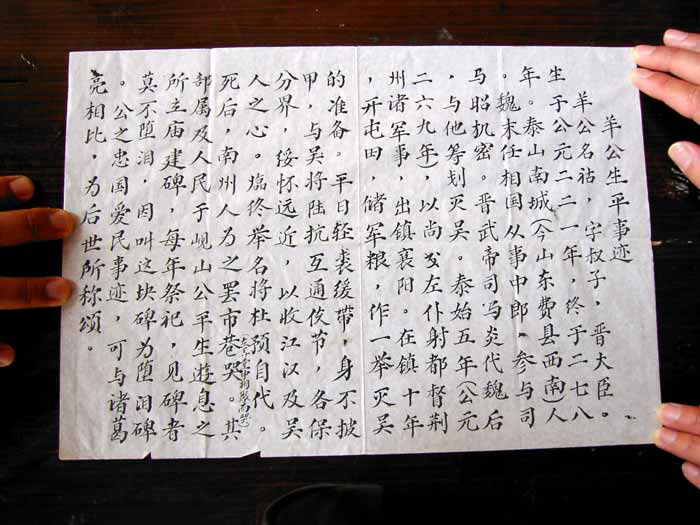 羊公生平事迹
羊公名祜，字权子，晋大臣。
生于公元二二一年，终于二七八
年。泰山南城(今山东费县西南)人
。魏末任相国从事中郎，参与司
马昭机密。晋武帝司马炎代魏后
，与他筹划灭吴。泰始五年(公元
二六九年)，以尚书左仆射都督荆
州诸军事，出镇襄阳。在镇十年
，开屯田，储军粮，作一举灭吴
的准备。平日轻裘缓带，身不披
甲，与吴将陆抗互通使节，各保
分界，绥怀远近，以收江以及吴
人之心。临终举名将杜预自代。
死后，南州人为之罢市巷哭。其
部属及人民于岘山公平生遊息之
所立庙建碑，每年祭祀，见碑者
莫不堕泪，因叫这块碑为堕泪碑
。公之忠国爱民事迹，可与诸葛
亮相比，为后世所称颂。